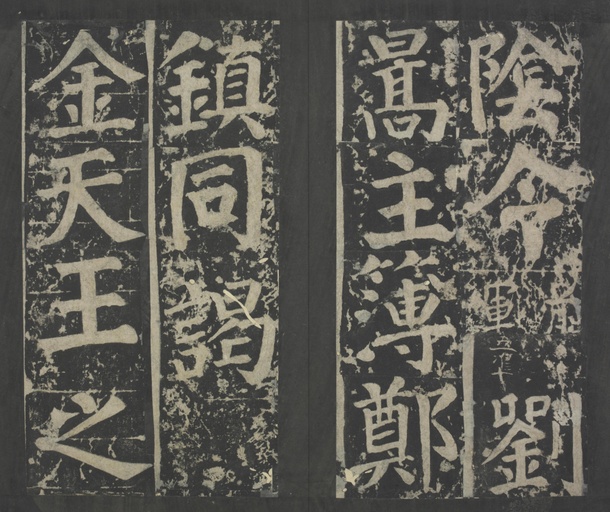 陰令劉
暠主簿鄭
鎮同謁
金天王之